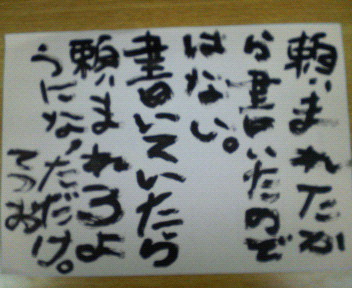 頼まれたか
ら書いたので
はない。
書いていたら
頼まれるよ
うになっただけ。
てつお